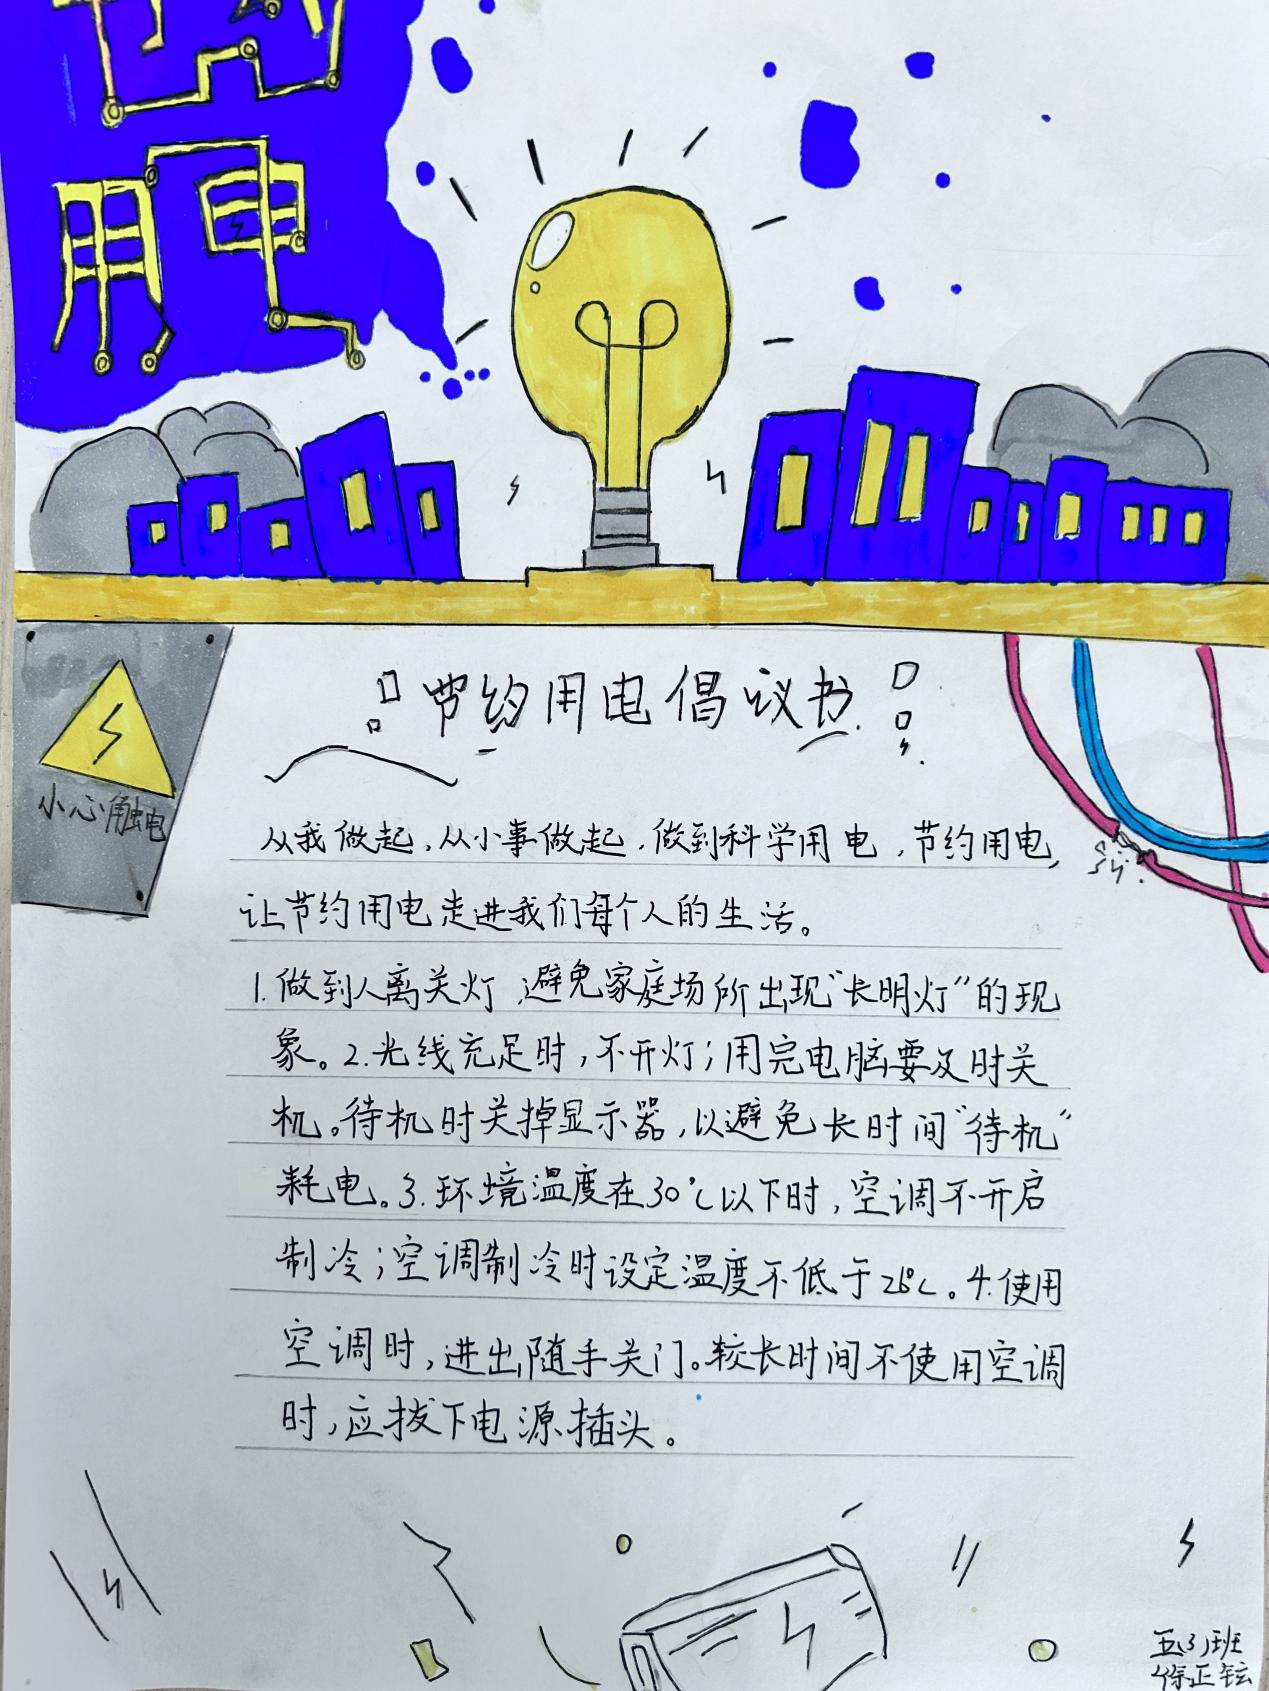 节约
用电
小心触电
节约用电倡议书
从我做起，从小事做起，做到科学用电，节约用电，
让节约用电走进我们每个人的生活。
1.做到人离关灯，避免家庭场所出现“长明灯”的现
象。2.光线充足时，不开灯；用完电脑要及时关
机。待机时关掉显示器，以避免长时间“待机”
耗电。3.环境温度在30℃以下时，空调不开启
制冷；空调制冷时设定温度不低于26℃。4.使用
空调时，进出随手关门。较长时间不使用空调
时，应拔下电源插头。
五(3)班
徐正铉